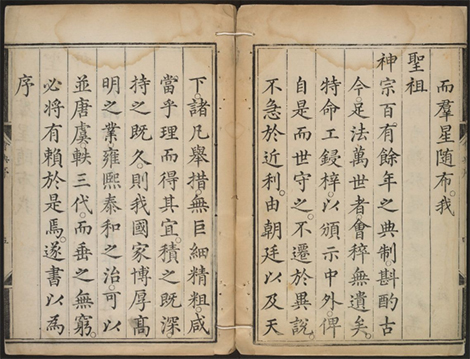 而羣星隨布。我
聖祖
神宗百有餘年之典制斟酌古
今足法萬世者會稡無遺矣。
特命工鋟梓。以頒示中外。俾
自是而世守之。不遷於異說。
不急於近利。由朝廷以及天
下。諸凡舉措。無巨細精粗。咸
當乎理而得其宜。積之既深
持之既久。則我國家博厚高
明之業雍熙泰和之治。可以
並唐虞軼三代。而垂之無窮。
必將有賴於是焉。遂書以為
序